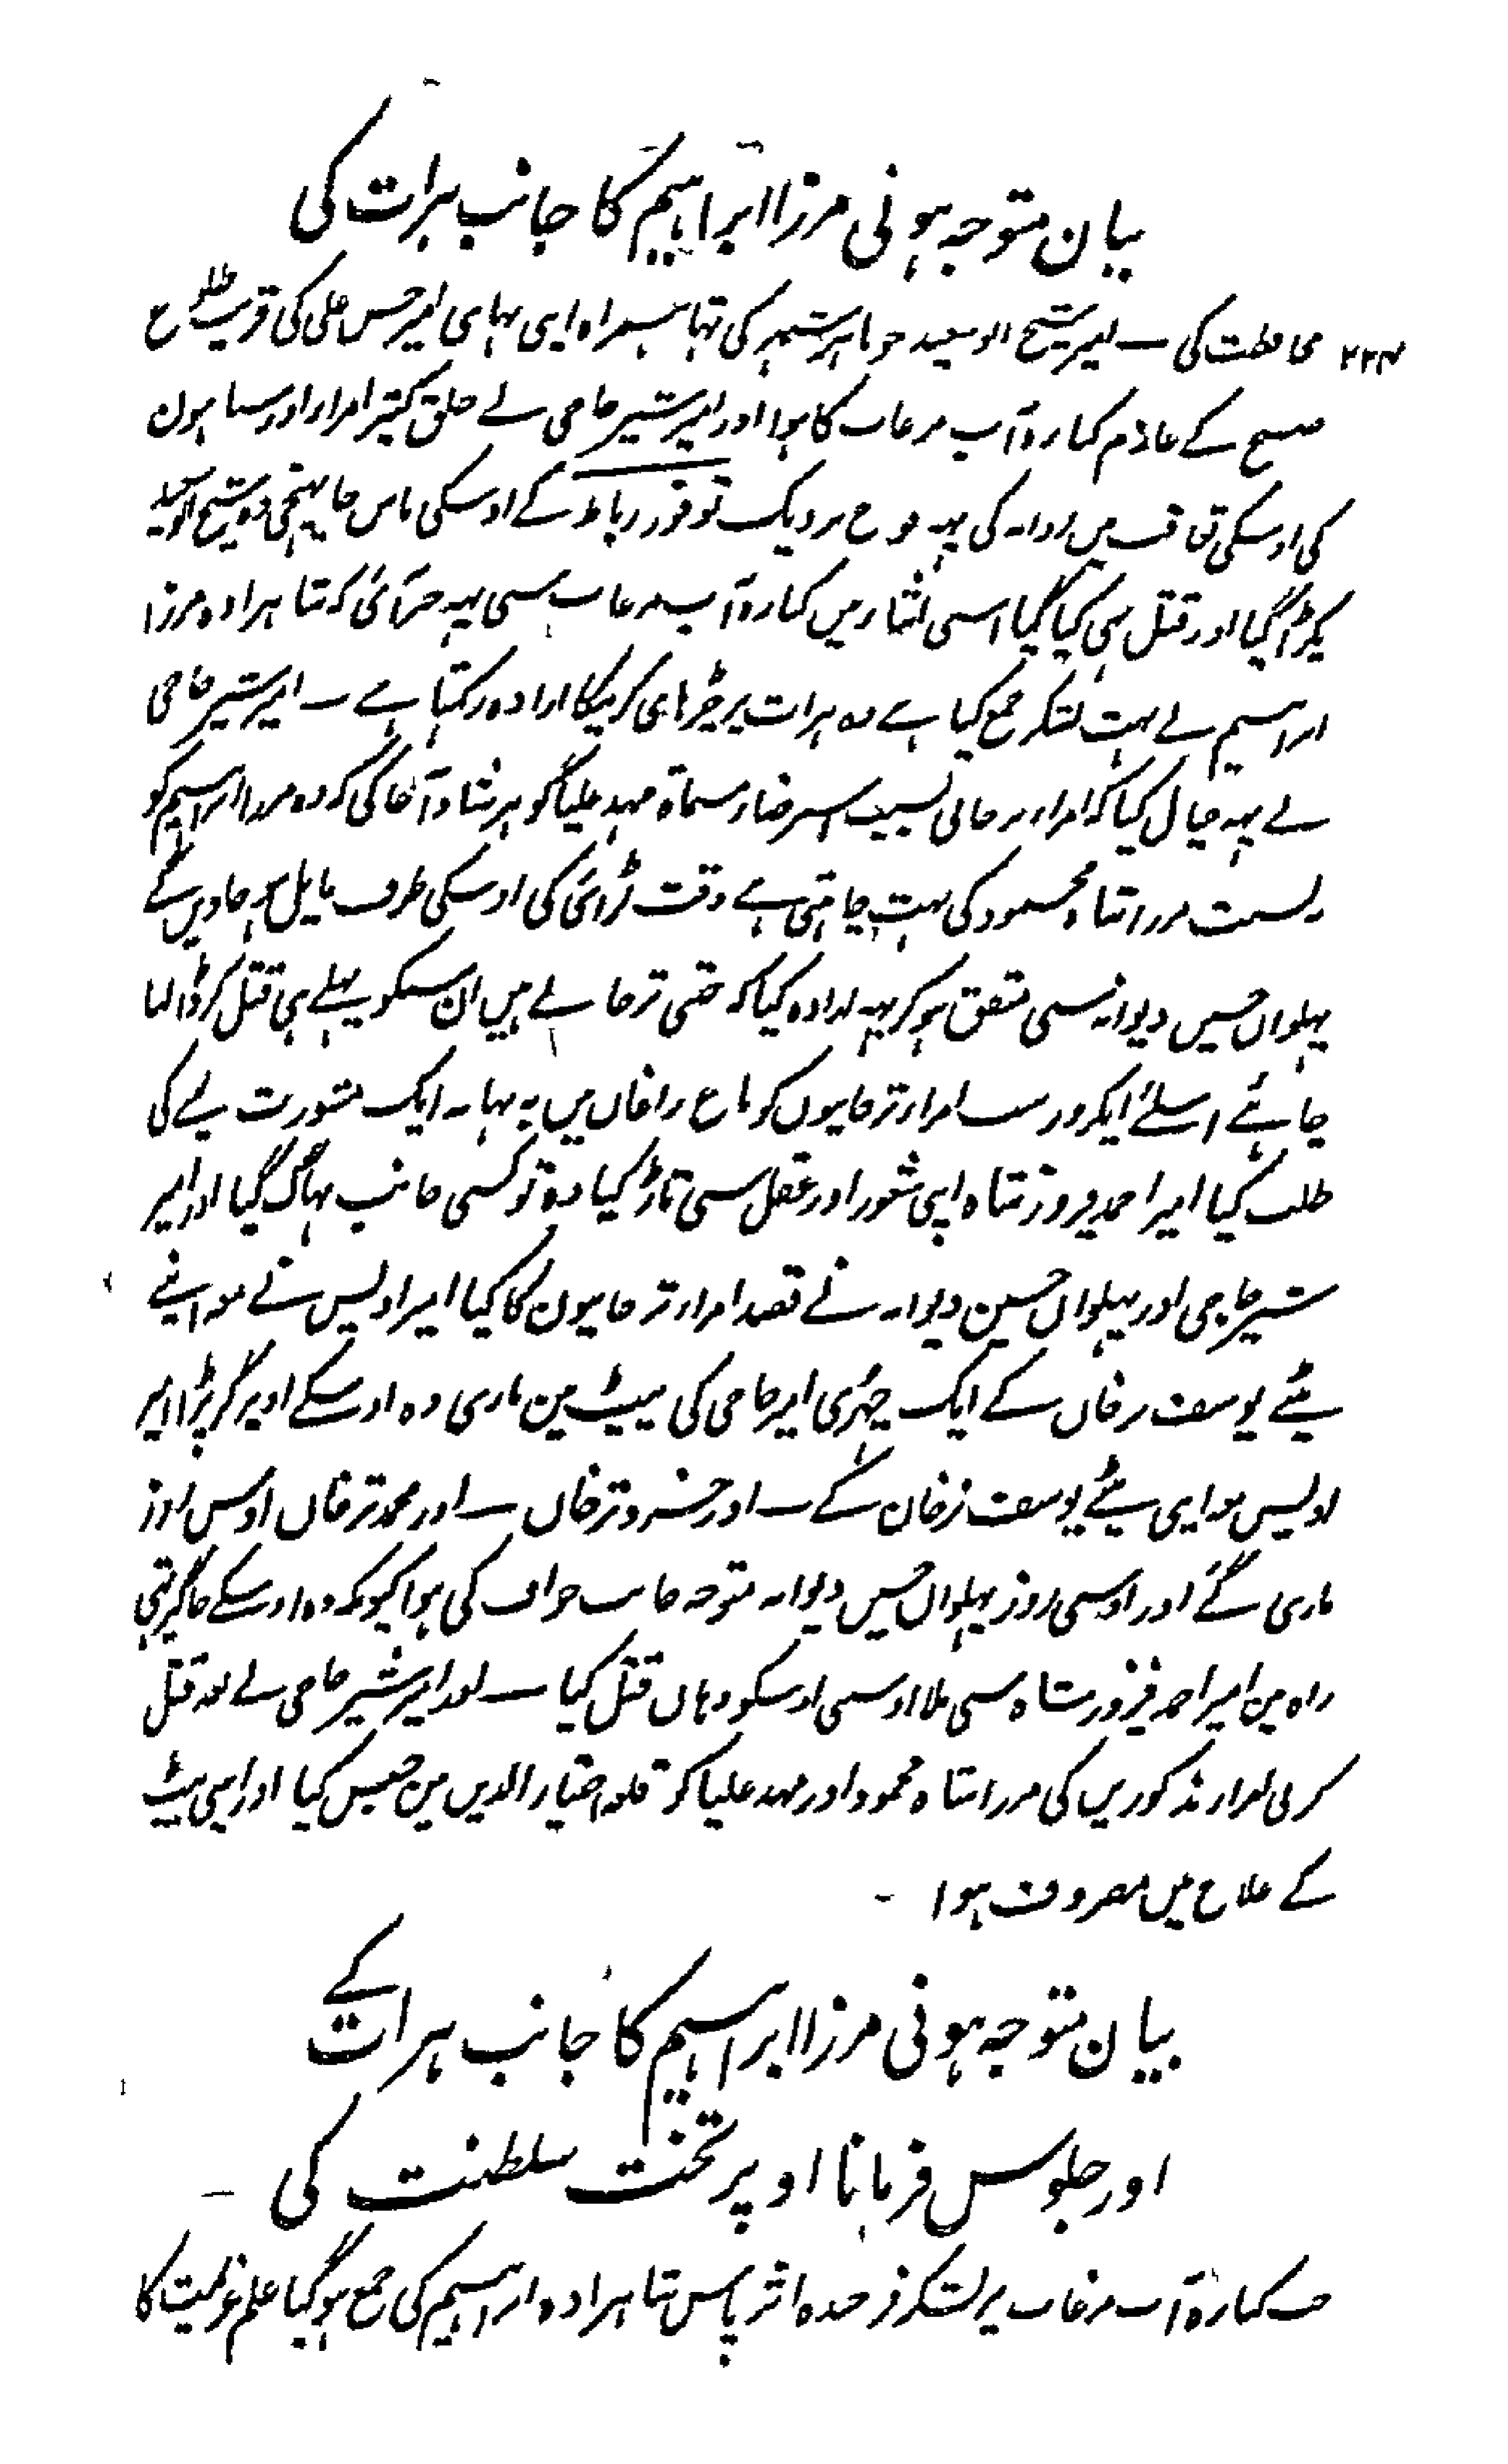 بیان متوجہ ہونی مرزا ابراہیم کا جانب ہرات کی
۲۲۴ محافظت کی ۔ امیر شیخ ابو سعید جو باہر شہر کی تہا ہمراہ اپنی بہائی امیر حسن علی کی قریب طلوع
صبح کے عازم کنارہ آب مرغاب کا ہوا اور امیر شیر حاجی نے خلق کثیر امرا اور سپاہیون
کی اوسکی تعاقب میں روانہ کی یہہ فوج نزدیک توقوز رباط کے اوسکی پاس جا پہنچی امیر شیخ ابو سعید
پکڑا گیا اور قتل بہی کیا گیا اسی اثنا میں کنارہ آب مرغاب سی یہہ خبر آئی کہ شاہزادہ مرزا
ابراہیم نے بہت لشکر جمع کیا ہے وہ ہرات پر چڑہائی کرنیکا ارادہ رکہتا ہے ۔ امیر شیر حاجی
نے یہہ خیال کیا کہ امراء ترخانی بسبب استرضاء مسماۃ مہد علیا گوہر شاد آغا کی کہ وہ مرزا ابراہیم کو
بہ نسبت مرزا شاہ محمود کی بہت چاہتی ہے وقت لڑائی کی اوسکی طرف مایل ہو جاویں گے
پہلوان حسین دیوانہ سی متفق ہو کر یہہ ارادہ کیا کہ جتنی ترخانے ہیں ان سبکو پہلے ہی قتل کر ڈالنا
چاہئے اسلئے ایکروز سب امراء ترخانیوں کو باغ زاغاں میں بہ بہانہ ایک مشورت لینے کی
طلب کیا امیر احمد فیروز شاہ اپنی شعور اور عقل سی تاڑ گیا وہ تو کسی جانب بہاگ گیا اور امیر
شیر حاجی اور پہلوان حسین دیوانہ نے قصد امراء ترخانیون کا کیا امیر اویس نے معہ اپنے
بیٹے یوسف ترخاں کے ایک چہری امیر حاجی کی پیٹ مین ماری وہ اوسکے اوپر گر پڑا امیر
اویس معہ اپنی بیٹے یوسف ترخان کے ۔ اور خسرو ترخاں ۔ اور محمد ترخاں اوس روز
ماری گئے اور اوسی روز پہلوان حسین دیوانہ متوجہ جانب خواف کی ہوا کیونکہ وہ اوسکے جاگیر تہی
راہ مین امیر احمد فیروز شاہ سی ملا اوسی اوسکو وہاں قتل کیا ۔ اور امیر شیر حاجی نے بعد قتل
کرنی امراء مذکورین کی مرزا شاہ محمود اور مہد علیا کو قلعہ اختیار الدین مین حبس کیا اور اپنی پیٹ
کے علاج میں مصروف ہوا ۔
بیان متوجہ ہونی مرزا ابراہیم کا جانب ہرات کے
اور جلوس فرمانا اوپر تخت سلطنت کی ۔
جب کنارہ آب مرغاب پر لشکر فرخندہ اثر پاس شاہزادہ ابراہیم کی جمع ہو گیا علم عزیمت کا